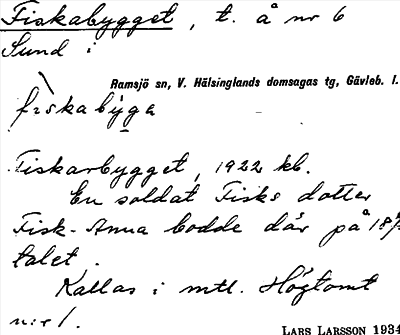 Fiskabygget, t. å nr 6
Sund i
Ramsjö sn, V. Hälsinglands domsagas tg, Gävleb. l.
fìskabỳga
Fiskarbygget, 1922 kb.
En soldat Fisks dotter
Fisk-Anna bodde där på 18
talet.
Kallas i mtl. Högtomt
n:r 1.
LARS LARSSON 1934